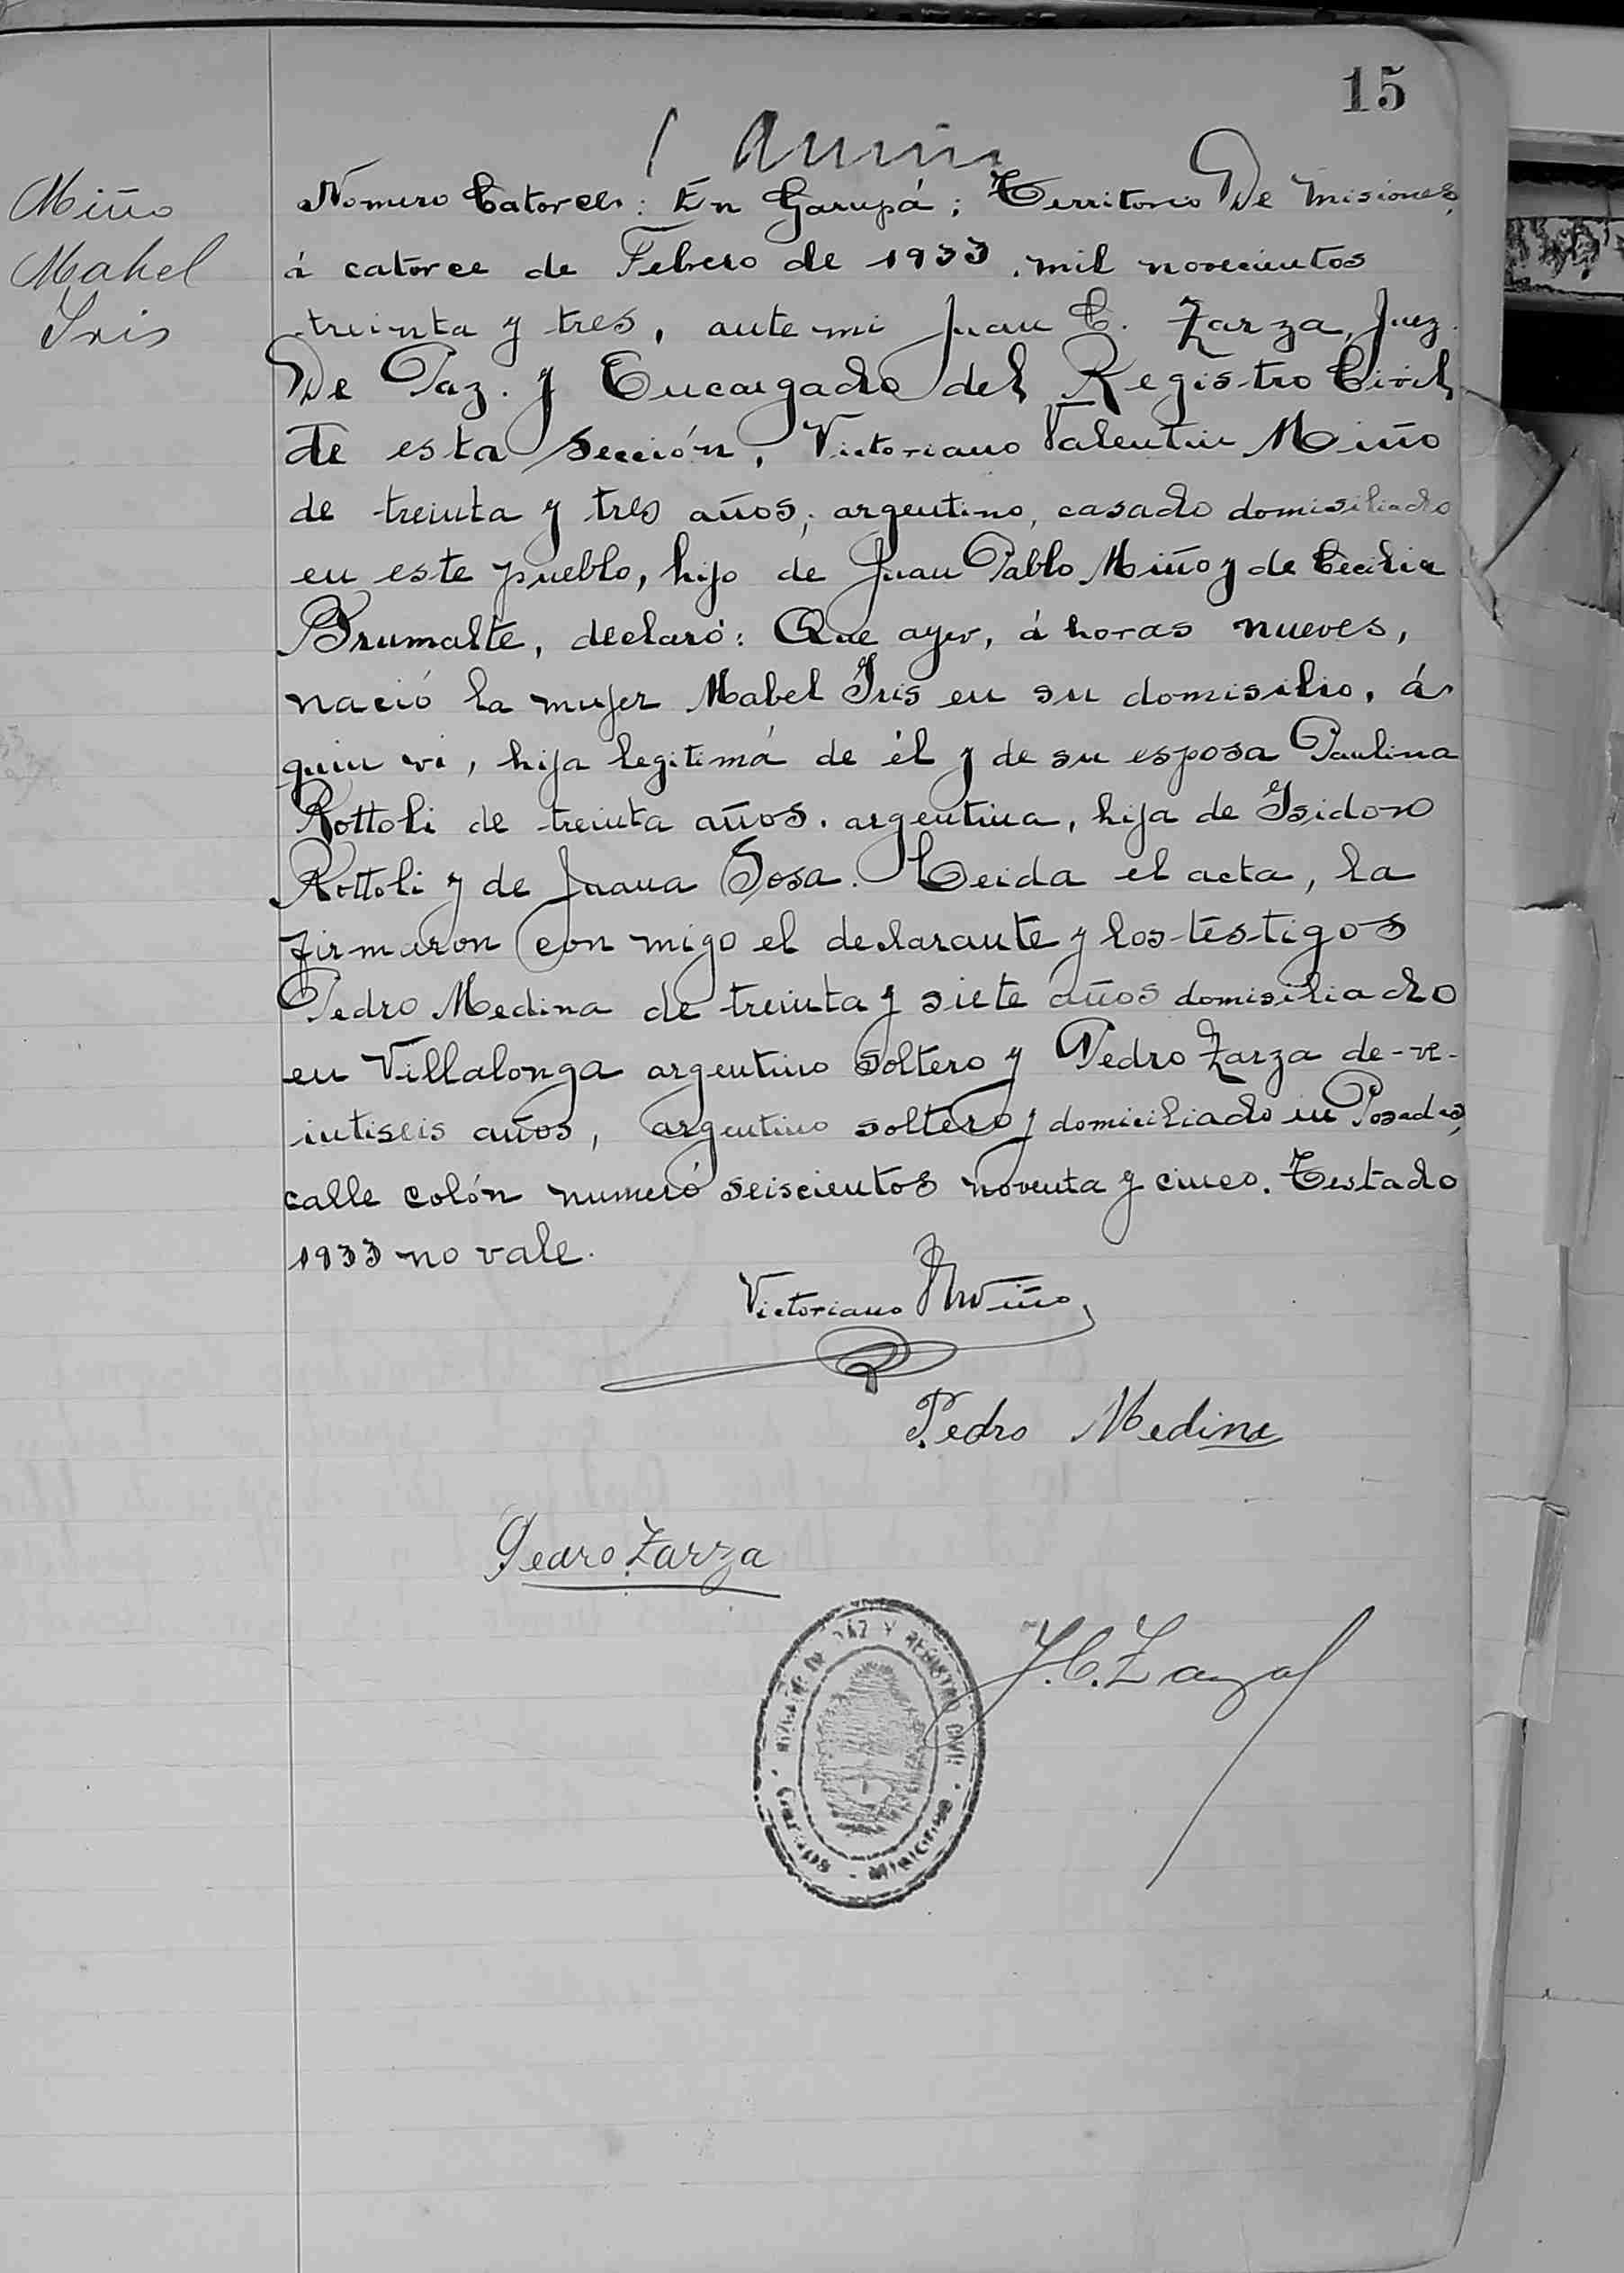 15
Miño
Mabel
Iris
Nomero Catorce: En Garupá; Territorio De Misiones,
á catorce de Febrero de 1933. mil novecientos
treinta y tres, ante mi Juan C. Zarza, Juez.
De Paz. y Encargado del Registro Civil
de esta Sección, Victoriano Valentin Miño
de treinta y tres años, argentino, casado domisiliado
en este pueblo, hijo de Juan Pablo Miño y de Cecilia
Brumalte, declaró: Que ayer, á horas nueves,
nació la mujer Mabel Iris en su domisilio, á
quien vi, hija legitimá de él y de su esposa Paulina
Rottoli de treinta años. argentina, hija de Isidoro
Rottoli y de Juana Sosa. Leida el acta, la
firmaron con migo el declarante y los testigos
Pedro Medina de treinta y siete años domisiliado
en Villalonga argentino soltero y Pedro Zarza de-ve-
intiseis años, argentino soltero y domiciliado en Posadas,
calle colón numeró seiscientos noventa y cinco. Testado
1933 no vale.
Victoriano Miño
Pedro Medina
Pedro Zarza
J.C. Zarza
PAZ Y REGISTRO CIVIL
Garupá - Misiones